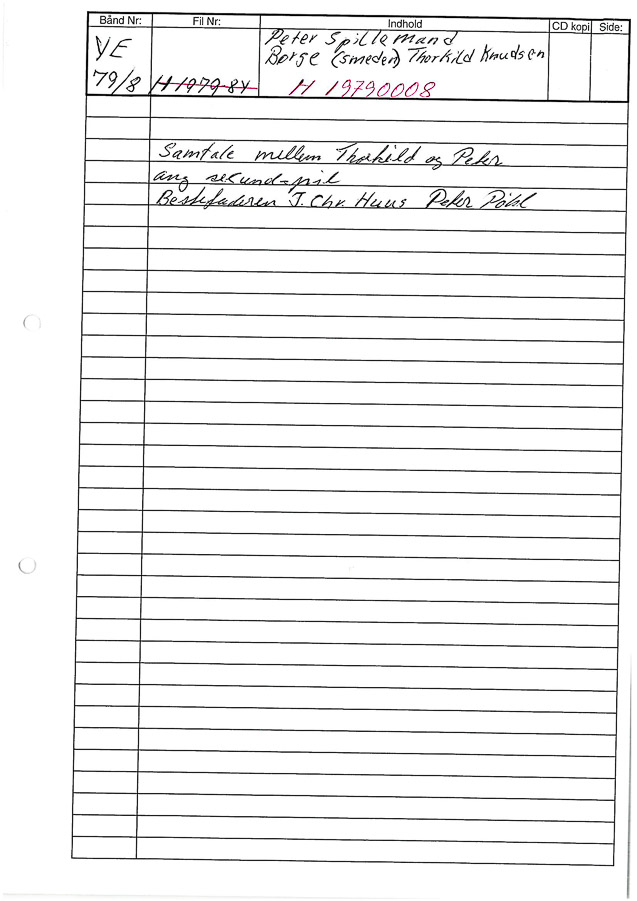 Bånd Nr: Fil Nr: Indhold CD kopi Side:
VE Peter Spillemand
Børge (smeden) Thorkild Knudsen
79/8 H 1979-8 H 19790008
Samtale mellem Thorkild og Peter
ang sekund-spil
Bestefaderen J. Chr. Huus Peter